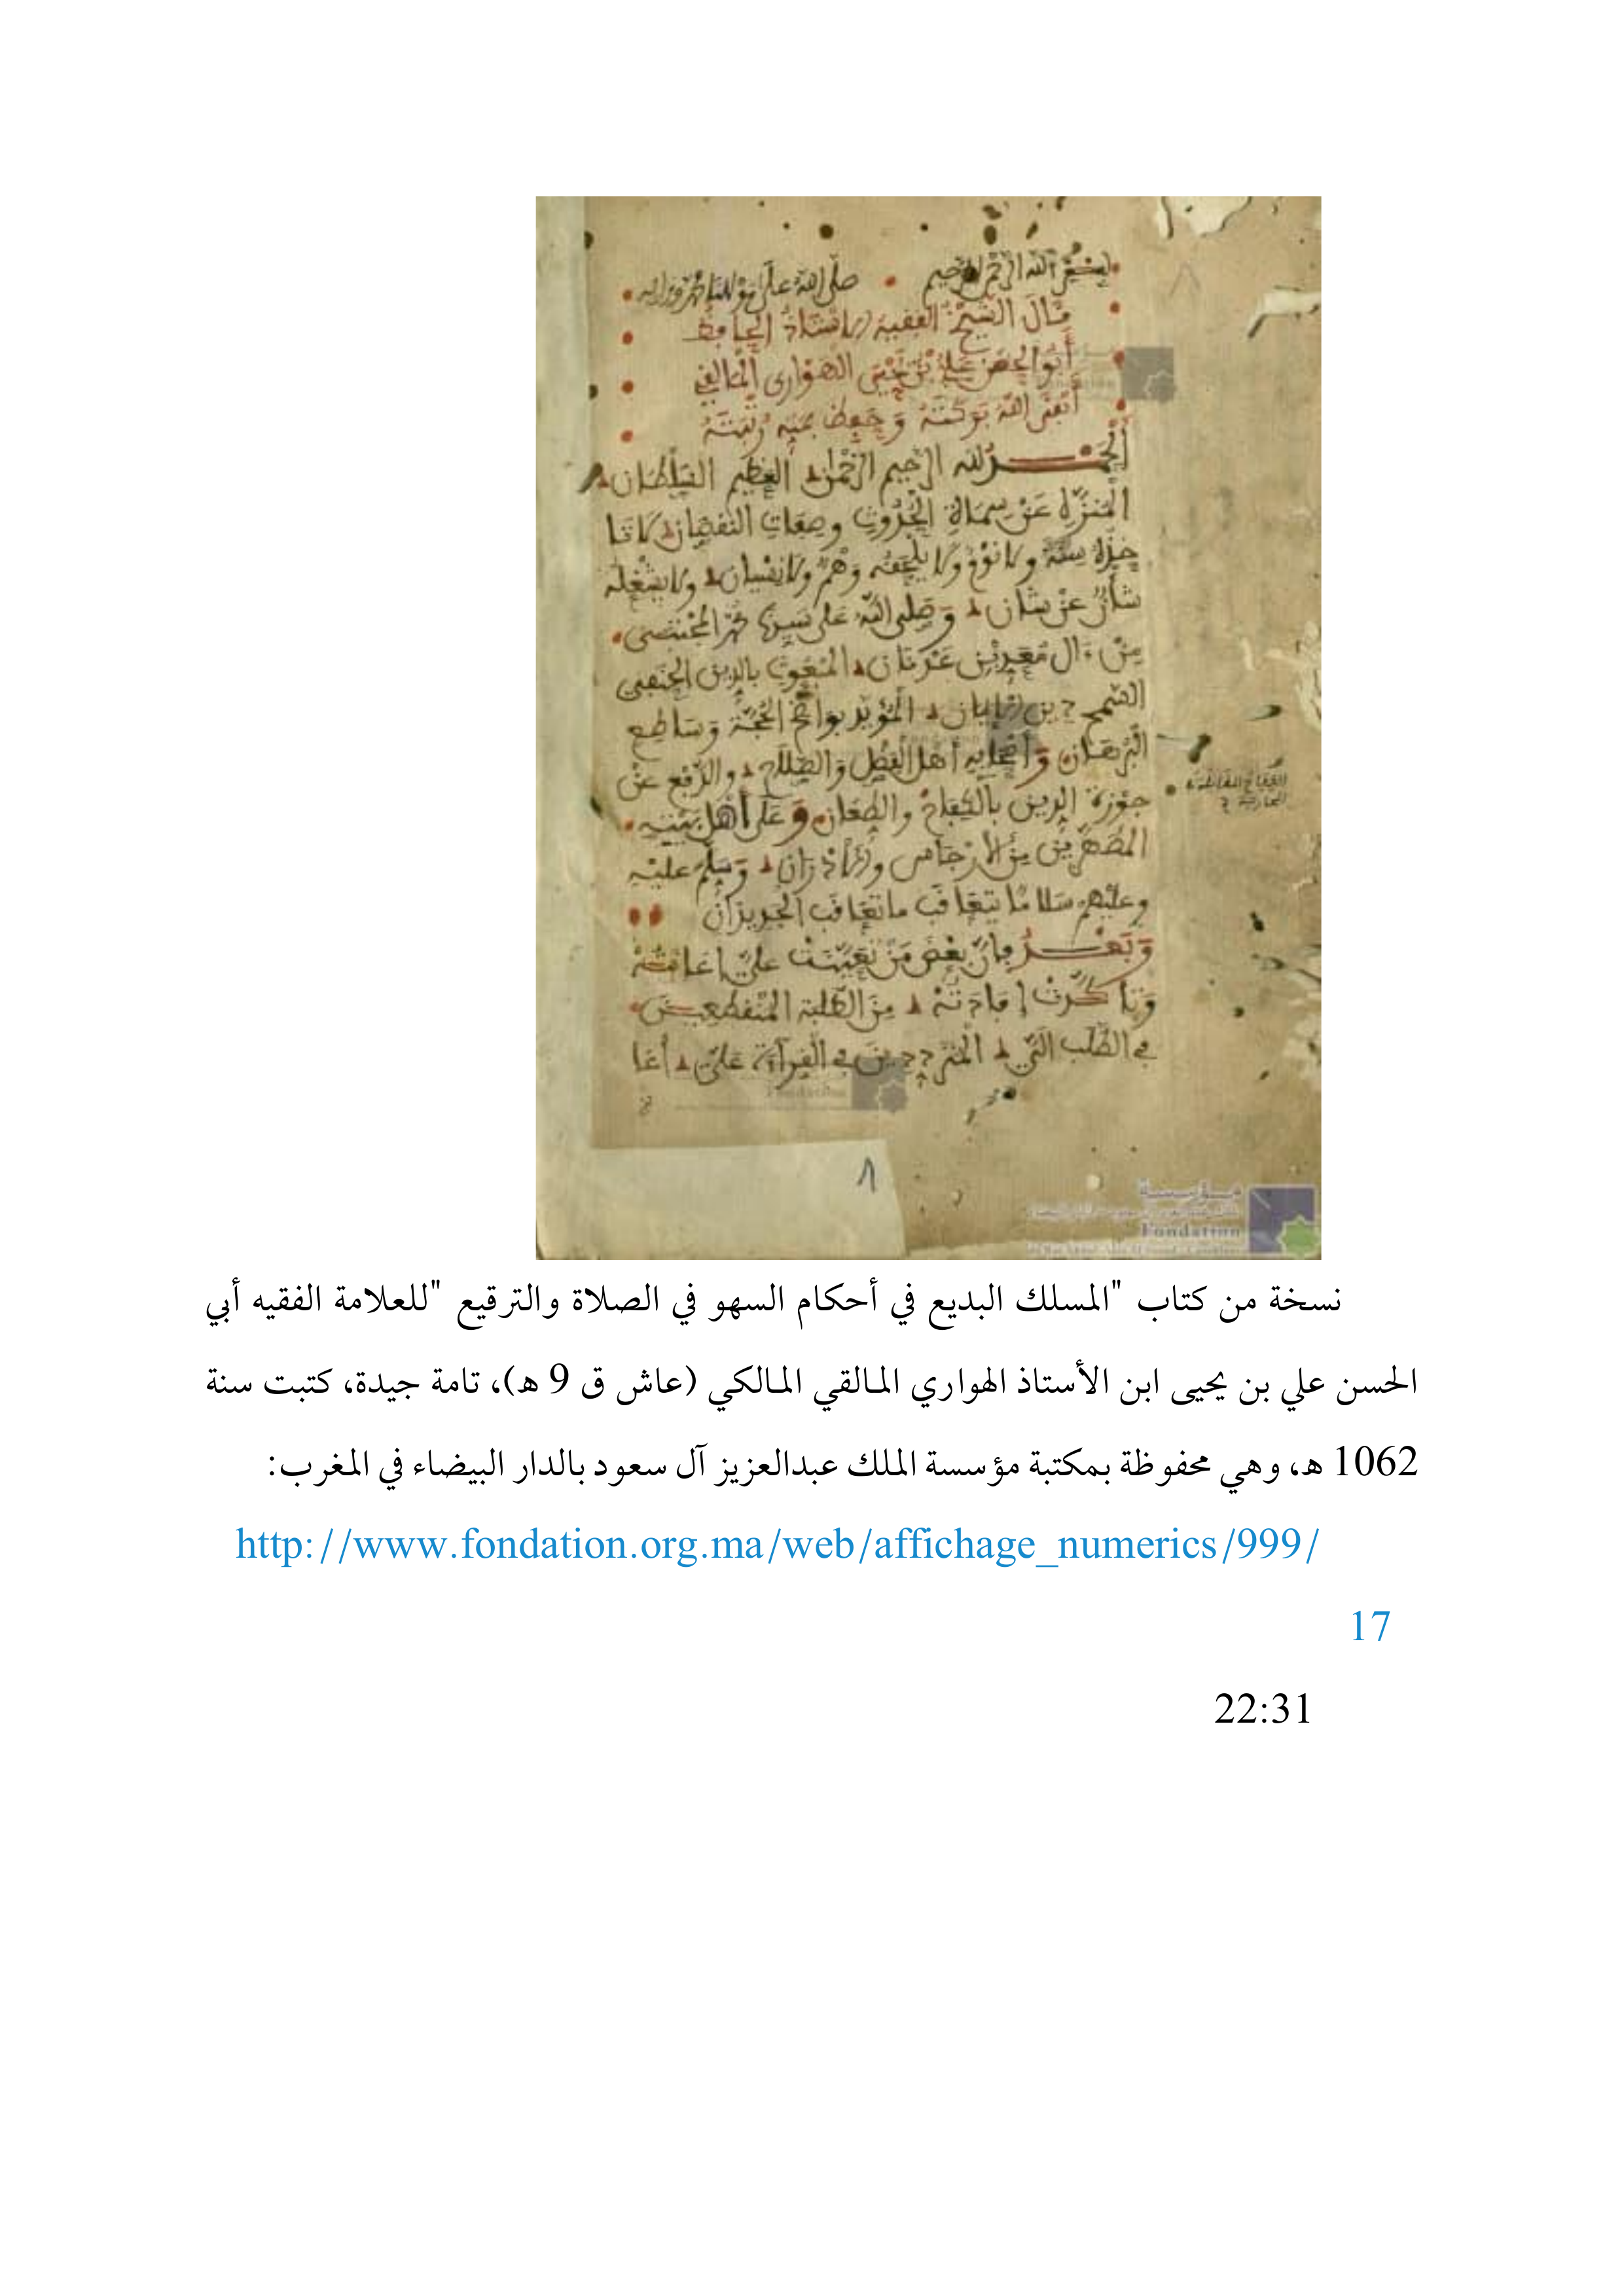 بسم الله الرحمن الرحيم • صلى الله على مولانا محمد وءاله
قال الشيخ الفقيه الاستاذ الحافظ
أبو الحسن علي بن يحيى الهواري المالقي
أبقى الله بركته وحفظ بمنه رتبته
الحمد لله الرحيم الرحمن العظيم السلطان
المنزه عن سمات الحدوث وصفات النقصان لا تا
خذه سنة ولا نوم ولا يلحقه وهم ولا نسيان ولا يشغله
شأن عن شان وصلى الله على سيدنا محمد المجتبى
من ءال معد بن عدنان المبعوث بالدين الحنيفي
البرهان و أهل الفضل والصلاح والدفع عن
حوزة الدين بالكفاح والطعان وعلى أهل بيته
المطهرين من الارجاس والادران وسلم عليه
وعليهم سلاما يتعاقب ما تعاقب الجديدان
وبعد فإن بعض من تعينت علي إعانته
وتاكدت إفادته من الطلبة المنقطعين
في الطلب الي المترددين في القراءة علي أعا
1
مؤسسة
Fondation
نسخة من كتاب "المسلك البديع في أحكام السهو في الصلاة والترقيع "للعلامة الفقيه أبي
الحسن علي بن يحيى ابن الأستاذ الهواري المالقي المالكي (عاش ق 9 ه)، تامة جيدة، كتبت سنة
1062 ه، وهي محفوظة بمكتبة مؤسسة الملك عبدالعزيز آل سعود بالدار البيضاء في المغرب:
http://www.fondation.org.ma/web/affichage_numerics/999/
17
22:31